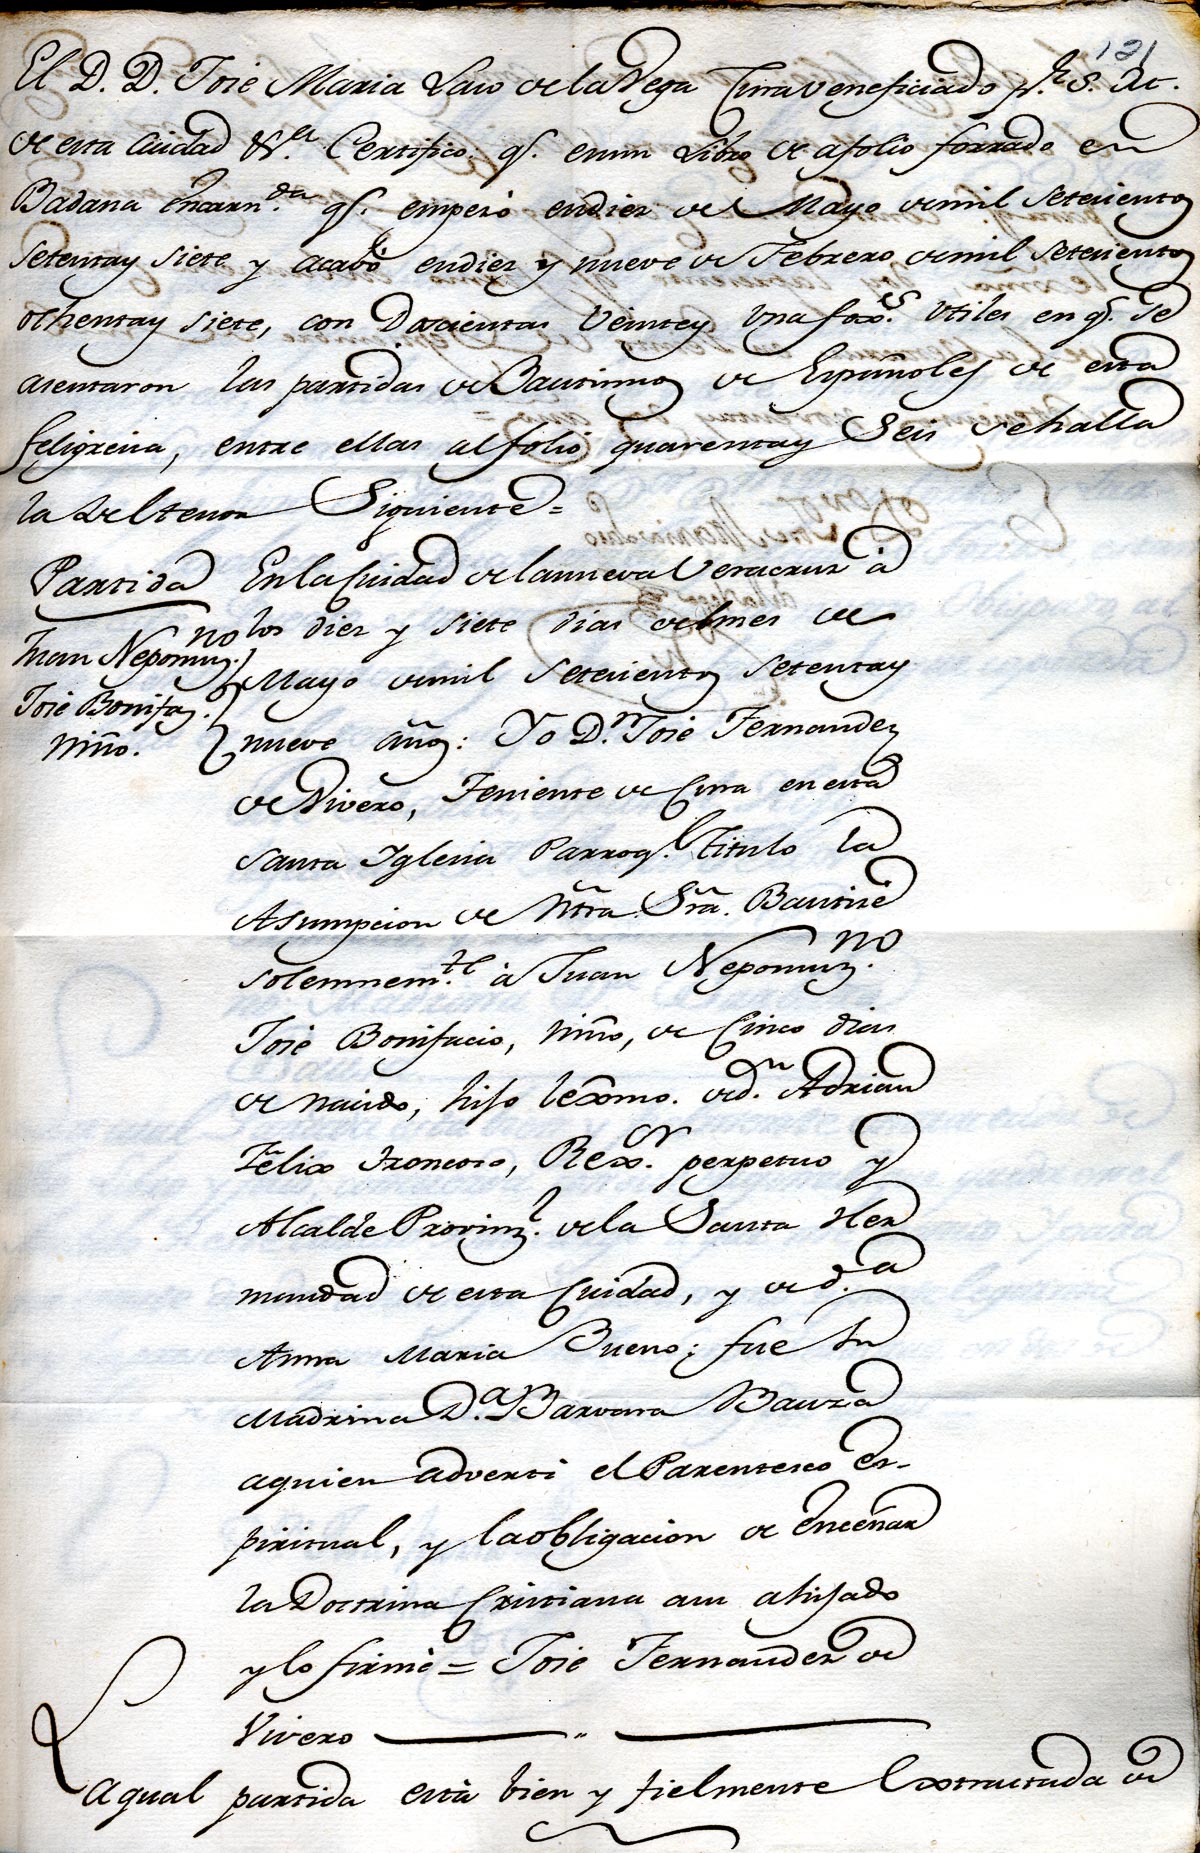 121
El D. D. Jose Maria Laso de la Vega Cura veneficiado pr. S. M.
de esta Ciudad &.a Certifico qe. en un Libro de a folio forrado en
Badana encarnda. qe. empesó en diez de Mayo de mil setecientos
setenta y siete y acavó en diez y nueve de Febrero, de mil setecientos
ochenta y siete, con Doscientas Veinte y Una foxs. Utiles en qe. se
asentaron las partidas de Bautismos de Españoles de esta
feligresia, entre ellas al folio quarenta y Seis se halla
la del tenor Siguiente =
Partida
Juan Nepomuzno.
Jose Bonifaz.
niño.
En la Ciudad de la nueva Veracruz á
los diez y siete dias del mes de
Mayo de mil setecientos setenta y
nueve años: Yo Dn. Jose Fernandez
de Vivero, Teniente de Cura en esta
Santa Iglesia Parroql. Titulo la
Asumpcion de Ntra. Sra. Bautisé
solemnemte. à Juan Nepomuzno.
Jose Bonifacio, niño, de Cinco dias
de nacido, hijo lexmo. de dn. Adrian
Félix Troncoso, Rexor. perpetuo y
Alcalde Provinzl. de la Santa Her
mandad de esta Ciudad, y de da.
Anna Maria Bueno; fue su
Madrina Da. Barvara Bauza
a quien adverti el Parentesco es-
piritual, y la obligacion de enceñar
la Doctrina Cristiana a su ahijado
y lo firmé = Jose Fernandez de
Vivero
La qual partida está bien y fielmente Extractada de